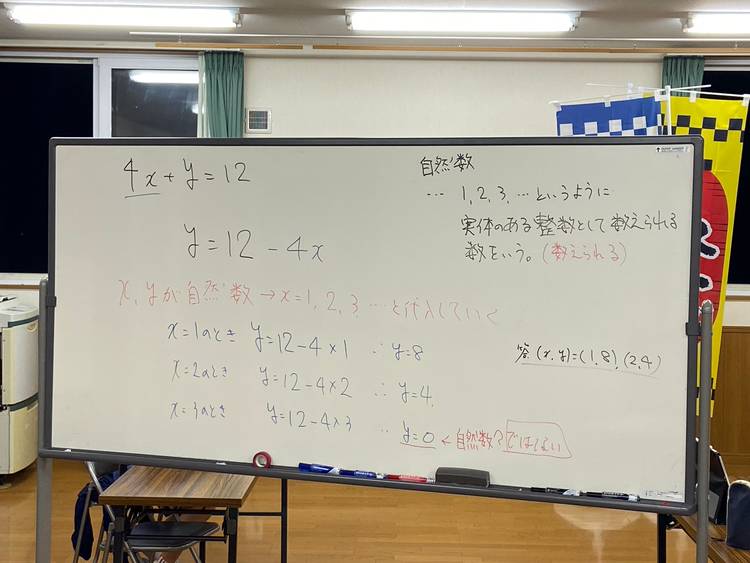 4x + y = 12
y = 12 - 4x
自然数
… 1, 2, 3, … というように
実体のある整数として数えられる
数をいう。(数えられる)
x, yが自然数 → x = 1, 2, 3 … と代入していく
x = 1のとき y = 12 - 4 × 1 ∴ y = 8
x = 2のとき y = 12 - 4 × 2 ∴ y = 4
x = 3のとき y = 12 - 4 × 3 ∴ y = 0 ← 自然数? ではない
答 (x, y) = (1, 8), (2, 4)